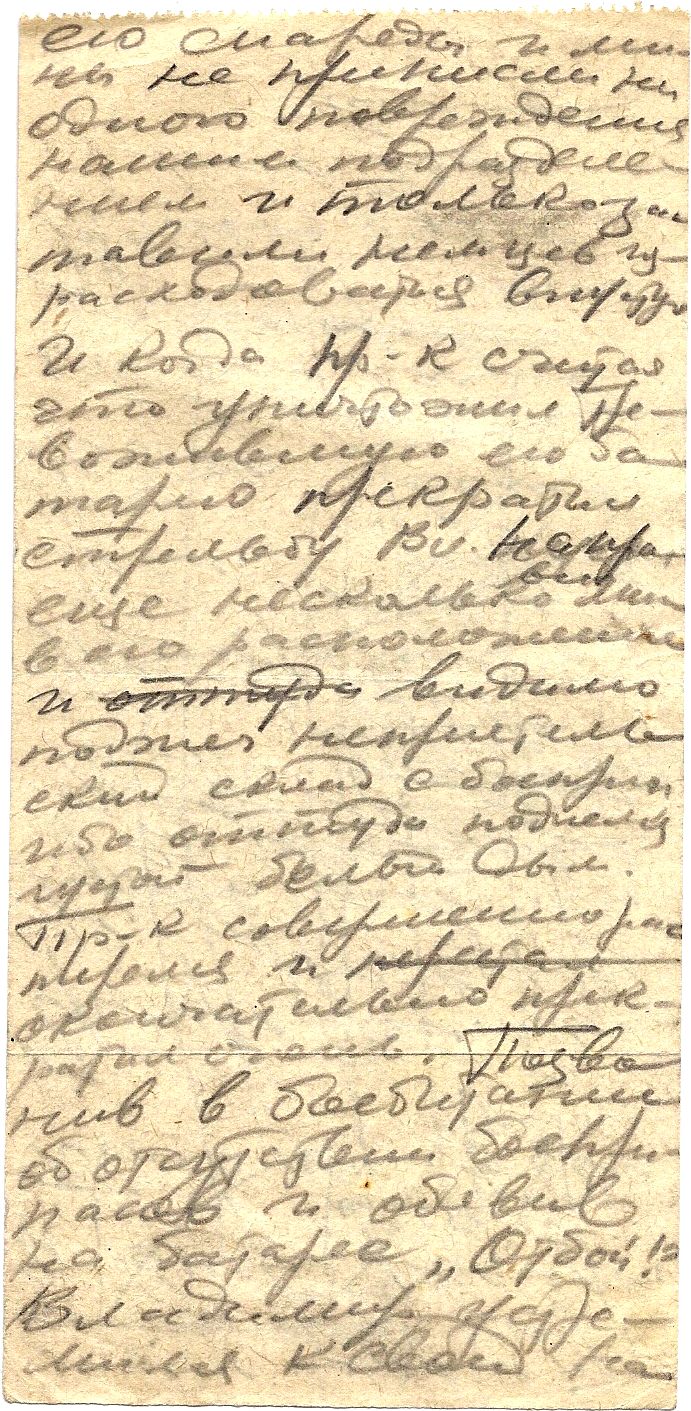 его снаряды и ми-
ны не принесли ни
одного повреждения
нашим подразделе-
ниям и только за-
ставили немцев из-
расходоваться впустую
И когда пр-к считая
что уничтожил тре-
вожившую его ба-
тарею прекратил
стрельбу Вл. направил
еще несколько мин
в его расположение
и оттуда видимо
поджег неприятель-
ский склад с боепри
ибо оттуда поднялся
густой белый дым.
Пр-к совершенно рас-
терялся и перестал
окончательно прек-
ратил огонь. Позво-
нив в боепитании
об отсутствии боепри-
пасов и объявив
на батарее „Отбой!"
Владимир устре-
мился к своей